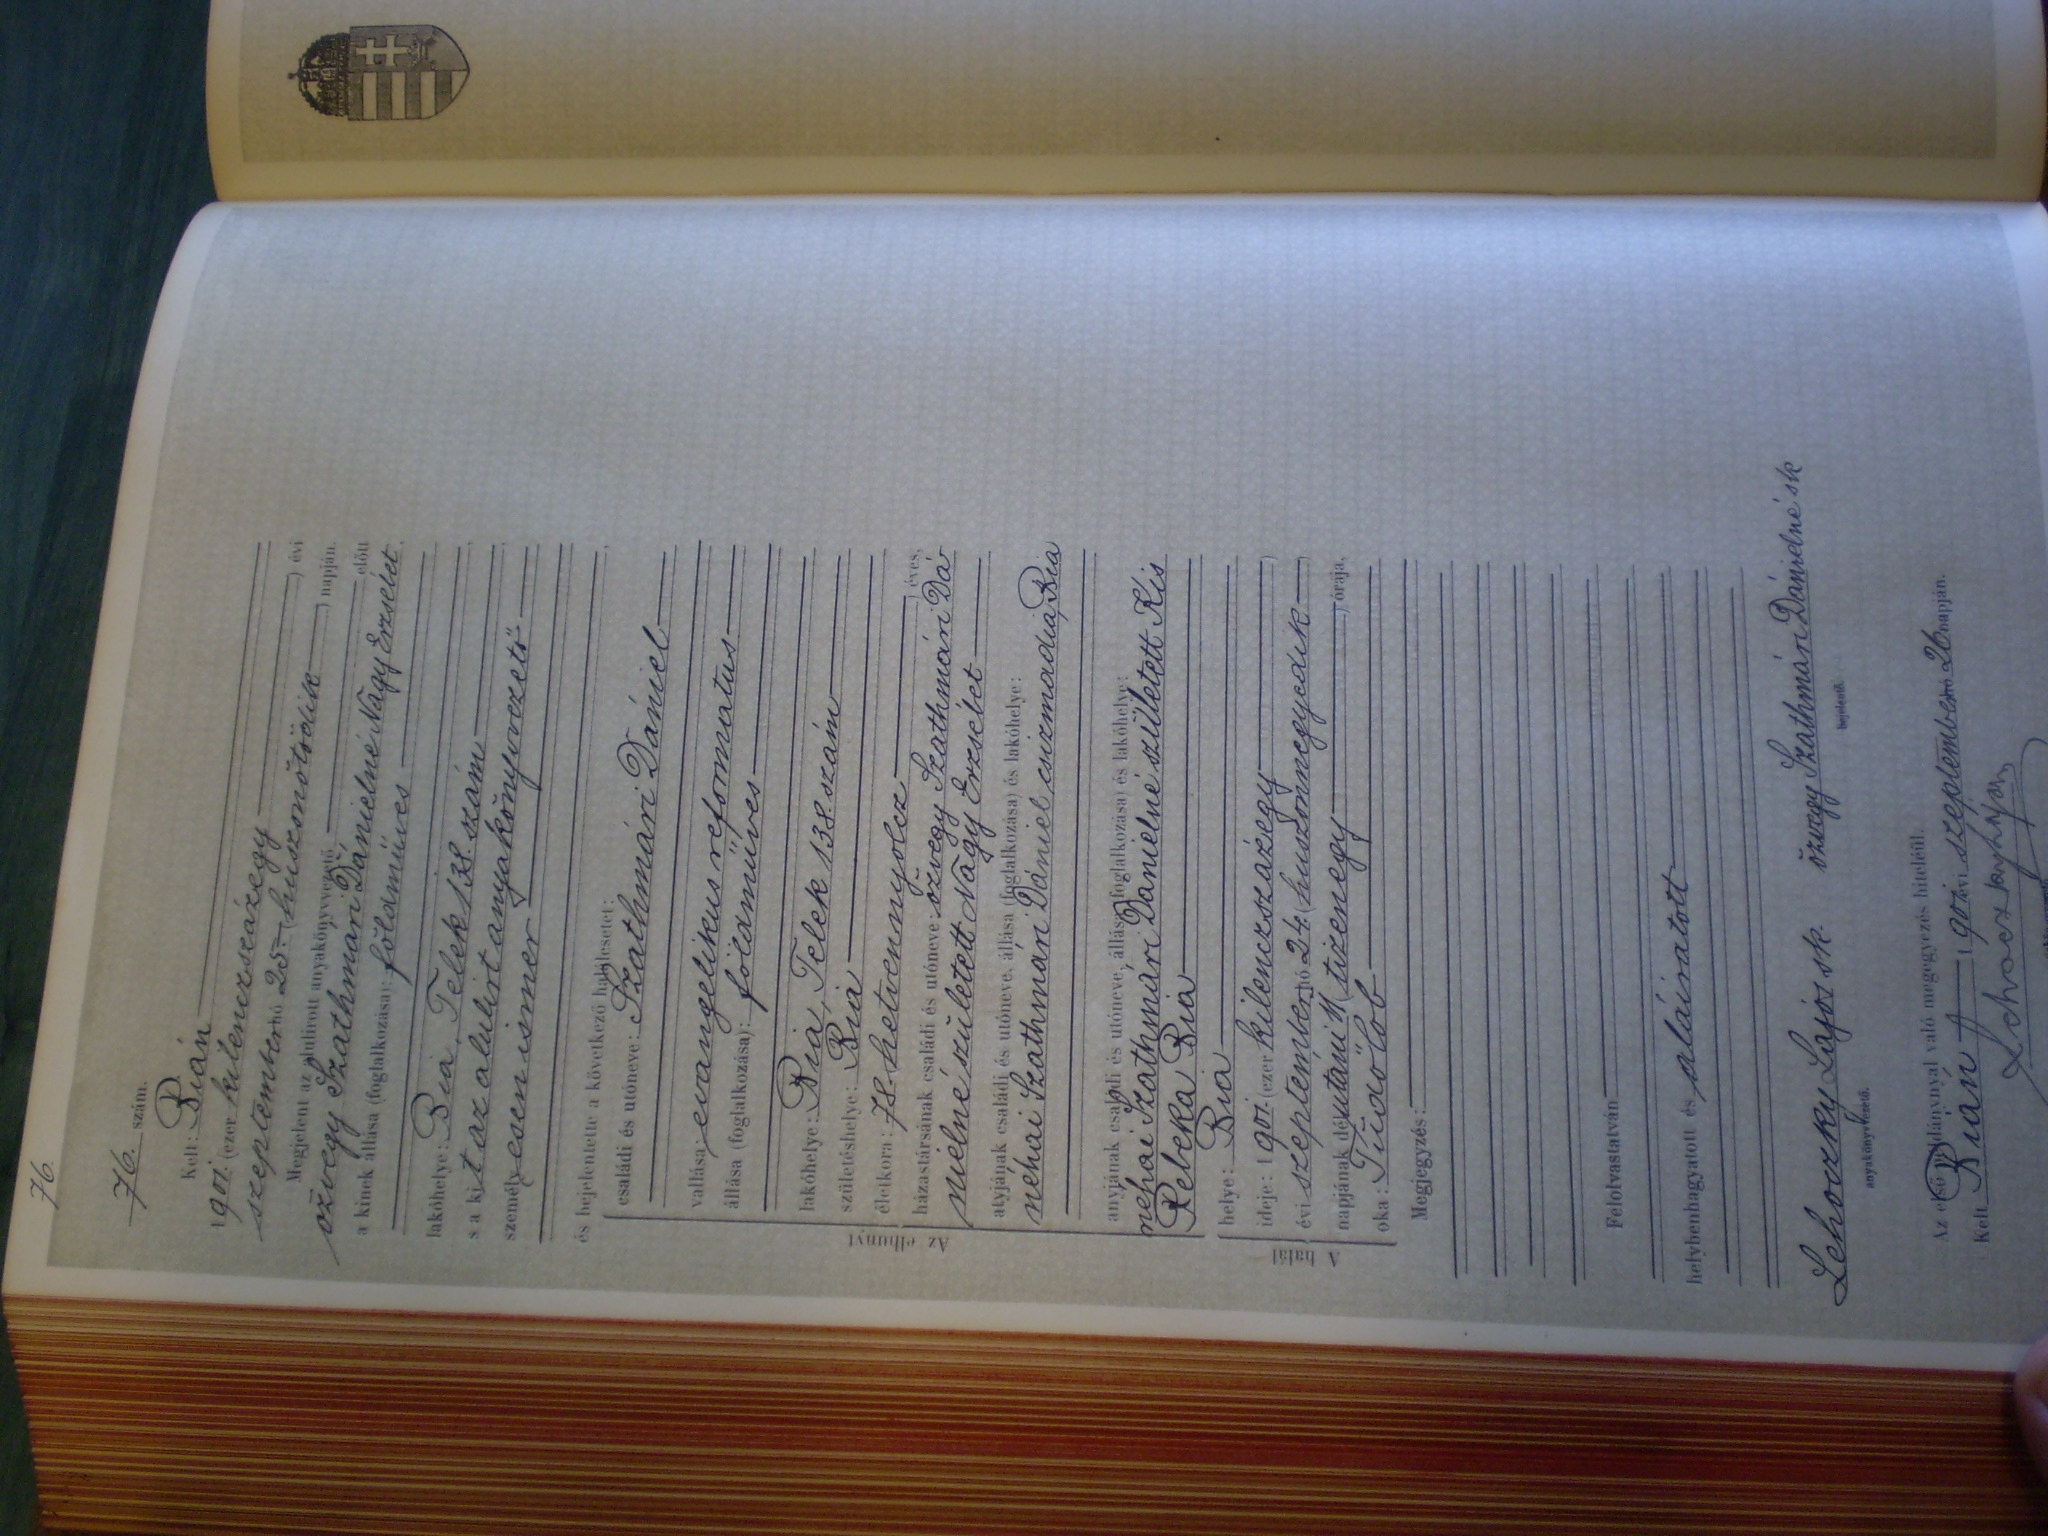 76.
76. szám.
Kelt: Bián
1901. (ezer kilenczszázegy ) évi
szeptember hó 25. (huszonötödik ) napján.
Megjelent az alulírott anyakönyvvezető előtt
özvegy Szathmári Dánielné Nagy Erzsébet,
a kinek állása (foglalkozása): földmüves
lakóhelye: Bia, Telek 138. szám
s a kit az alulirt anyakönyvvezető
személyesen ismer
és bejelentette a következő halálesetet:
Az elhunyt
családi és utóneve: Szathmári Dániel
vallása: evangelikus reformatus
állása (foglalkozása): földmüves
lakóhelye: Bia, Telek 138. szám
születéshelye: Bia
életkora: 78. hetvennyolcz ) éves,
házastársának családi és utóneve: özvegy Szathmári Dá
nielné született Nagy Erzsébet
atyjának családi és utóneve, állása (foglalkozása) és lakóhelye:
néhai Szathmári Dániel csizmadia, Bia
anyjának családi és utóneve, állása (foglalkozása) és lakóhelye:
néhai Szathmári Danielné született Kis
Rebeka Bia
A halál
helye: Bia
ideje: 1901. (ezer kilenczszázegy )
évi szeptember hó 24. (huszonnegyedik )
napjának délutáni 11 (tizenegy ) órája,
oka: Tüdőlob
Megjegyzés:
Felolvastatván
helybenhagyatott és aláiratott
Lehoczky Lajos sk özvegy Szathmári Dánielné sk
anyakönyvvezető. bejelentő.
Az első példánynyal való megegyezés hiteléül.
Kelt Bián 1901 évi szeptember hó 26 napján.